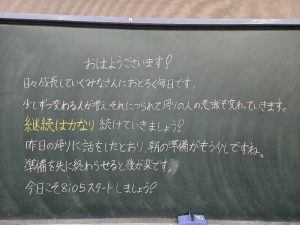 おはようございます!
日々成長していくみなさんにおどろく毎日です。
少しずつ変わる人が増え、それにつられて周りの人の意識も変わっていきます。
継続は力なり 続けていきましょう!
昨日の帰りに話をしたとおり、朝の準備がもう少しですね。
準備を先に終わらせると後が楽です。
今日こそ8:05スタートしましょう!